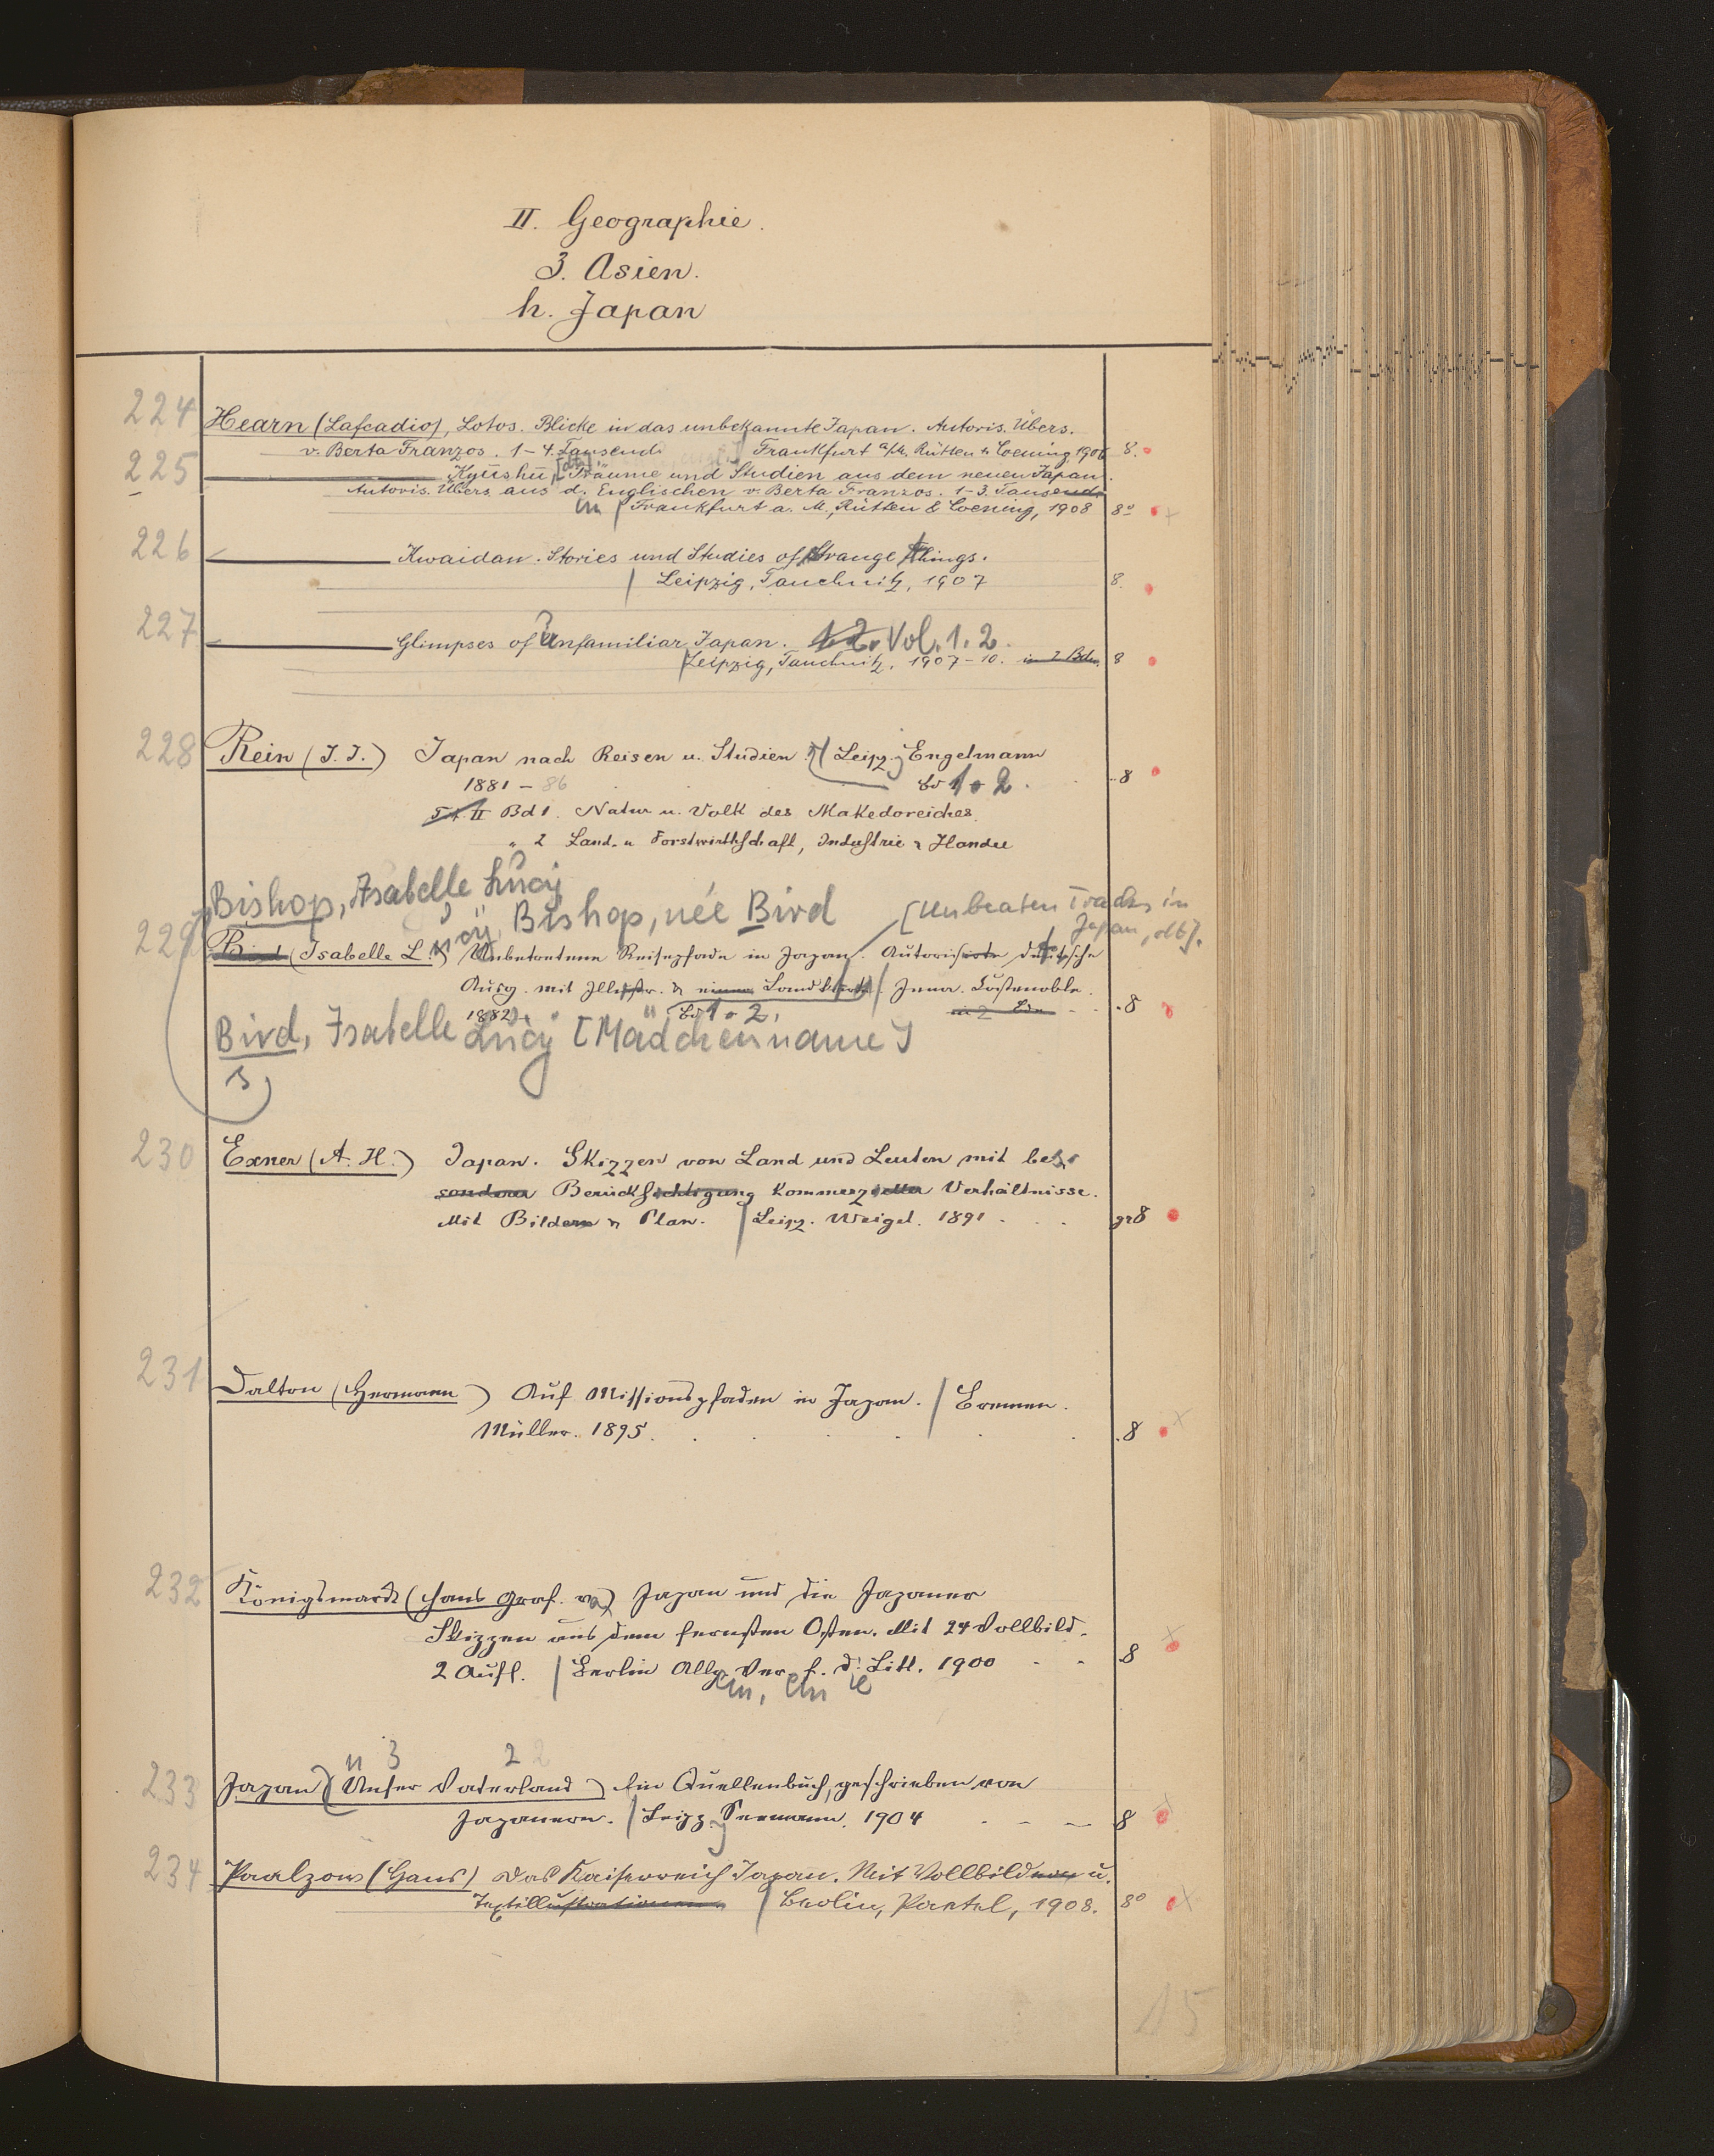 II. Geographie.
3. Asien.
h. Japan
224 Hearn (Lafcadio), Lotos. Blicke in das unbekannte Japan. Autoris. Übers.
v. Berta Franzos. 1-4. Tausend. Frankfurt a/M. Rütten & Loening 1906 8.
225 Kyūshū [dt]. Träume und Studien aus dem neuen Japan.
Autoris. Übers. aus d. Englischen v. Berta Franzos. 1-3. Tausend.
Frankfurt a. M., Rütten & Loening, 1908 8°
226 Kwaidan. Stories und Studies of Strange things.
Leipzig, Tauchnitz, 1907 8.
227 Glimpses of Unfamiliar Japan. 1.2. Vol. 1. 2.
Leipzig, Tauchnitz, 1907-10. in 2 Bdn. 8
228 Rein (J. J.) Japan nach Reisen u. Studien. Leipzg Engelmann
1881-86 Bd 1 + 2. 8
II Bd 1. Natur u. Volk des Mikadoreiches.
" 2 Land- u Forstwirthschaft, Industrie & Handel
Bishop, Isabelle Lucy
Bishop, née Bird [Unbeaten Tracks in
Japan, dt].
229 Bird (Isabelle L.) Unbetretene Reisepfade in Japan. Autorisirte deutsche
Ausg. mit Illustr. & einer Landkarte Jena. Costenoble.
1882. Bd 1 + 2. in 2 Bdn 8
Bird, Isabelle Lucy [Mädchenname]
s
230 Exner (A. H.) Japan. Skizzen von Land und Leuten mit beso
sonderer Berücksichtigung kommerzieller Verhältnisse.
Mit Bildern & Plan. Leipz. Weigel. 1891 gr8
231 Dalton (Hermann) Auf Missionspfaden in Japan. Bremen.
Müller. 1895. 8
232 Königsmarck (Hans Graf. v.) Japan und die Japaner
Skizzen aus dem fernsten Osten. Mit 24 Vollbild.
2 Aufl. Berlin Allg. Ver. f. d. Litt. 1900 8
3 2
233 Japan (Unser Vaterland) Ein Quellenbuch, geschrieben von
Japanern. Leipzg Seemann. 1904 8
234 Paalzow (Hans) Das Kaiserreich Japan. Mit Vollbildern u.
Textillustrationen. Berlin, Paetel, 1908. 8°
15